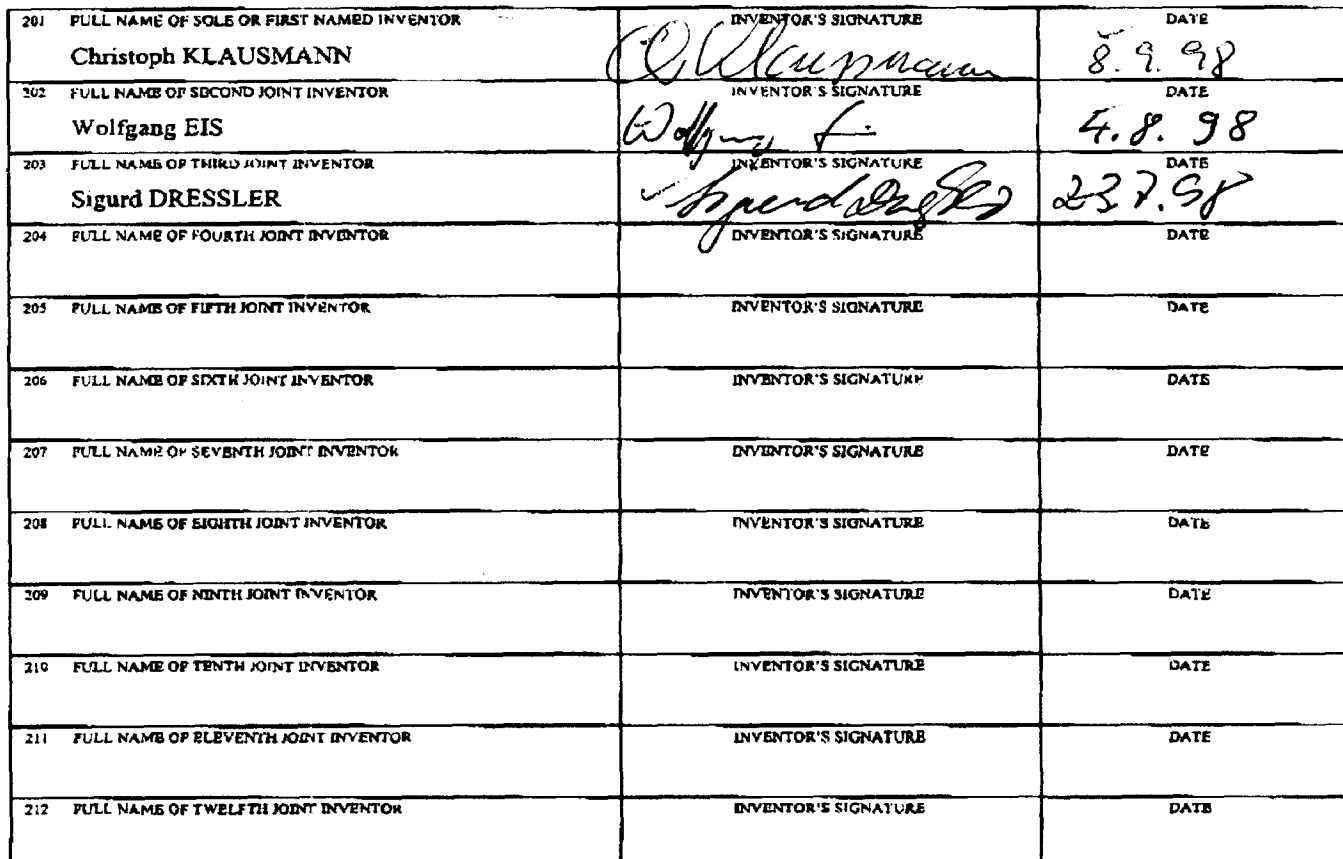 201 FULL NAME OF SOLE OR FIRST NAMED INVENTOR INVENTOR'S SIGNATURE DATE
Christoph KLAUSMANN Klausmann 8.9.98
202 FULL NAME OF SECOND JOINT INVENTOR INVENTOR'S SIGNATURE DATE
Wolfgang EIS Wolfgang 4.8.98
203 FULL NAME OF THIRD JOINT INVENTOR INVENTOR'S SIGNATURE DATE
Sigurd DRESSLER Sigurd Dressler 23.7.98
204 FULL NAME OF FOURTH JOINT INVENTOR INVENTOR'S SIGNATURE DATE
205 FULL NAME OF FIFTH JOINT INVENTOR INVENTOR'S SIGNATURE DATE
206 FULL NAME OF SIXTH JOINT INVENTOR INVENTOR'S SIGNATURE DATE
207 FULL NAME OF SEVENTH JOINT INVENTOR INVENTOR'S SIGNATURE DATE
208 FULL NAME OF EIGHTH JOINT INVENTOR INVENTOR'S SIGNATURE DATE
209 FULL NAME OF NINTH JOINT INVENTOR INVENTOR'S SIGNATURE DATE
210 FULL NAME OF TENTH JOINT INVENTOR INVENTOR'S SIGNATURE DATE
211 FULL NAME OF ELEVENTH JOINT INVENTOR INVENTOR'S SIGNATURE DATE
212 FULL NAME OF TWELFTH JOINT INVENTOR INVENTOR'S SIGNATURE DATE